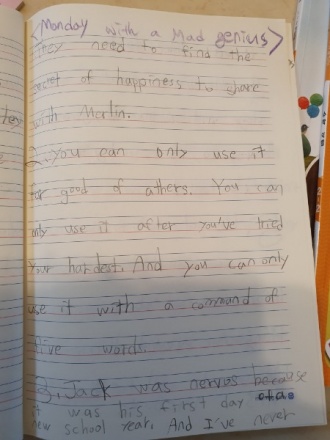 <Monday with a Mad genius>
They need to find the
secret of happiness to share
with Merlin.
2. you can only use it
for good of athers. You can
only use it after you've tried
your hardest. And you can only
use it with a command of
five words.
3. Jack was nervos because
it was his first day of a
new school year. And I've never